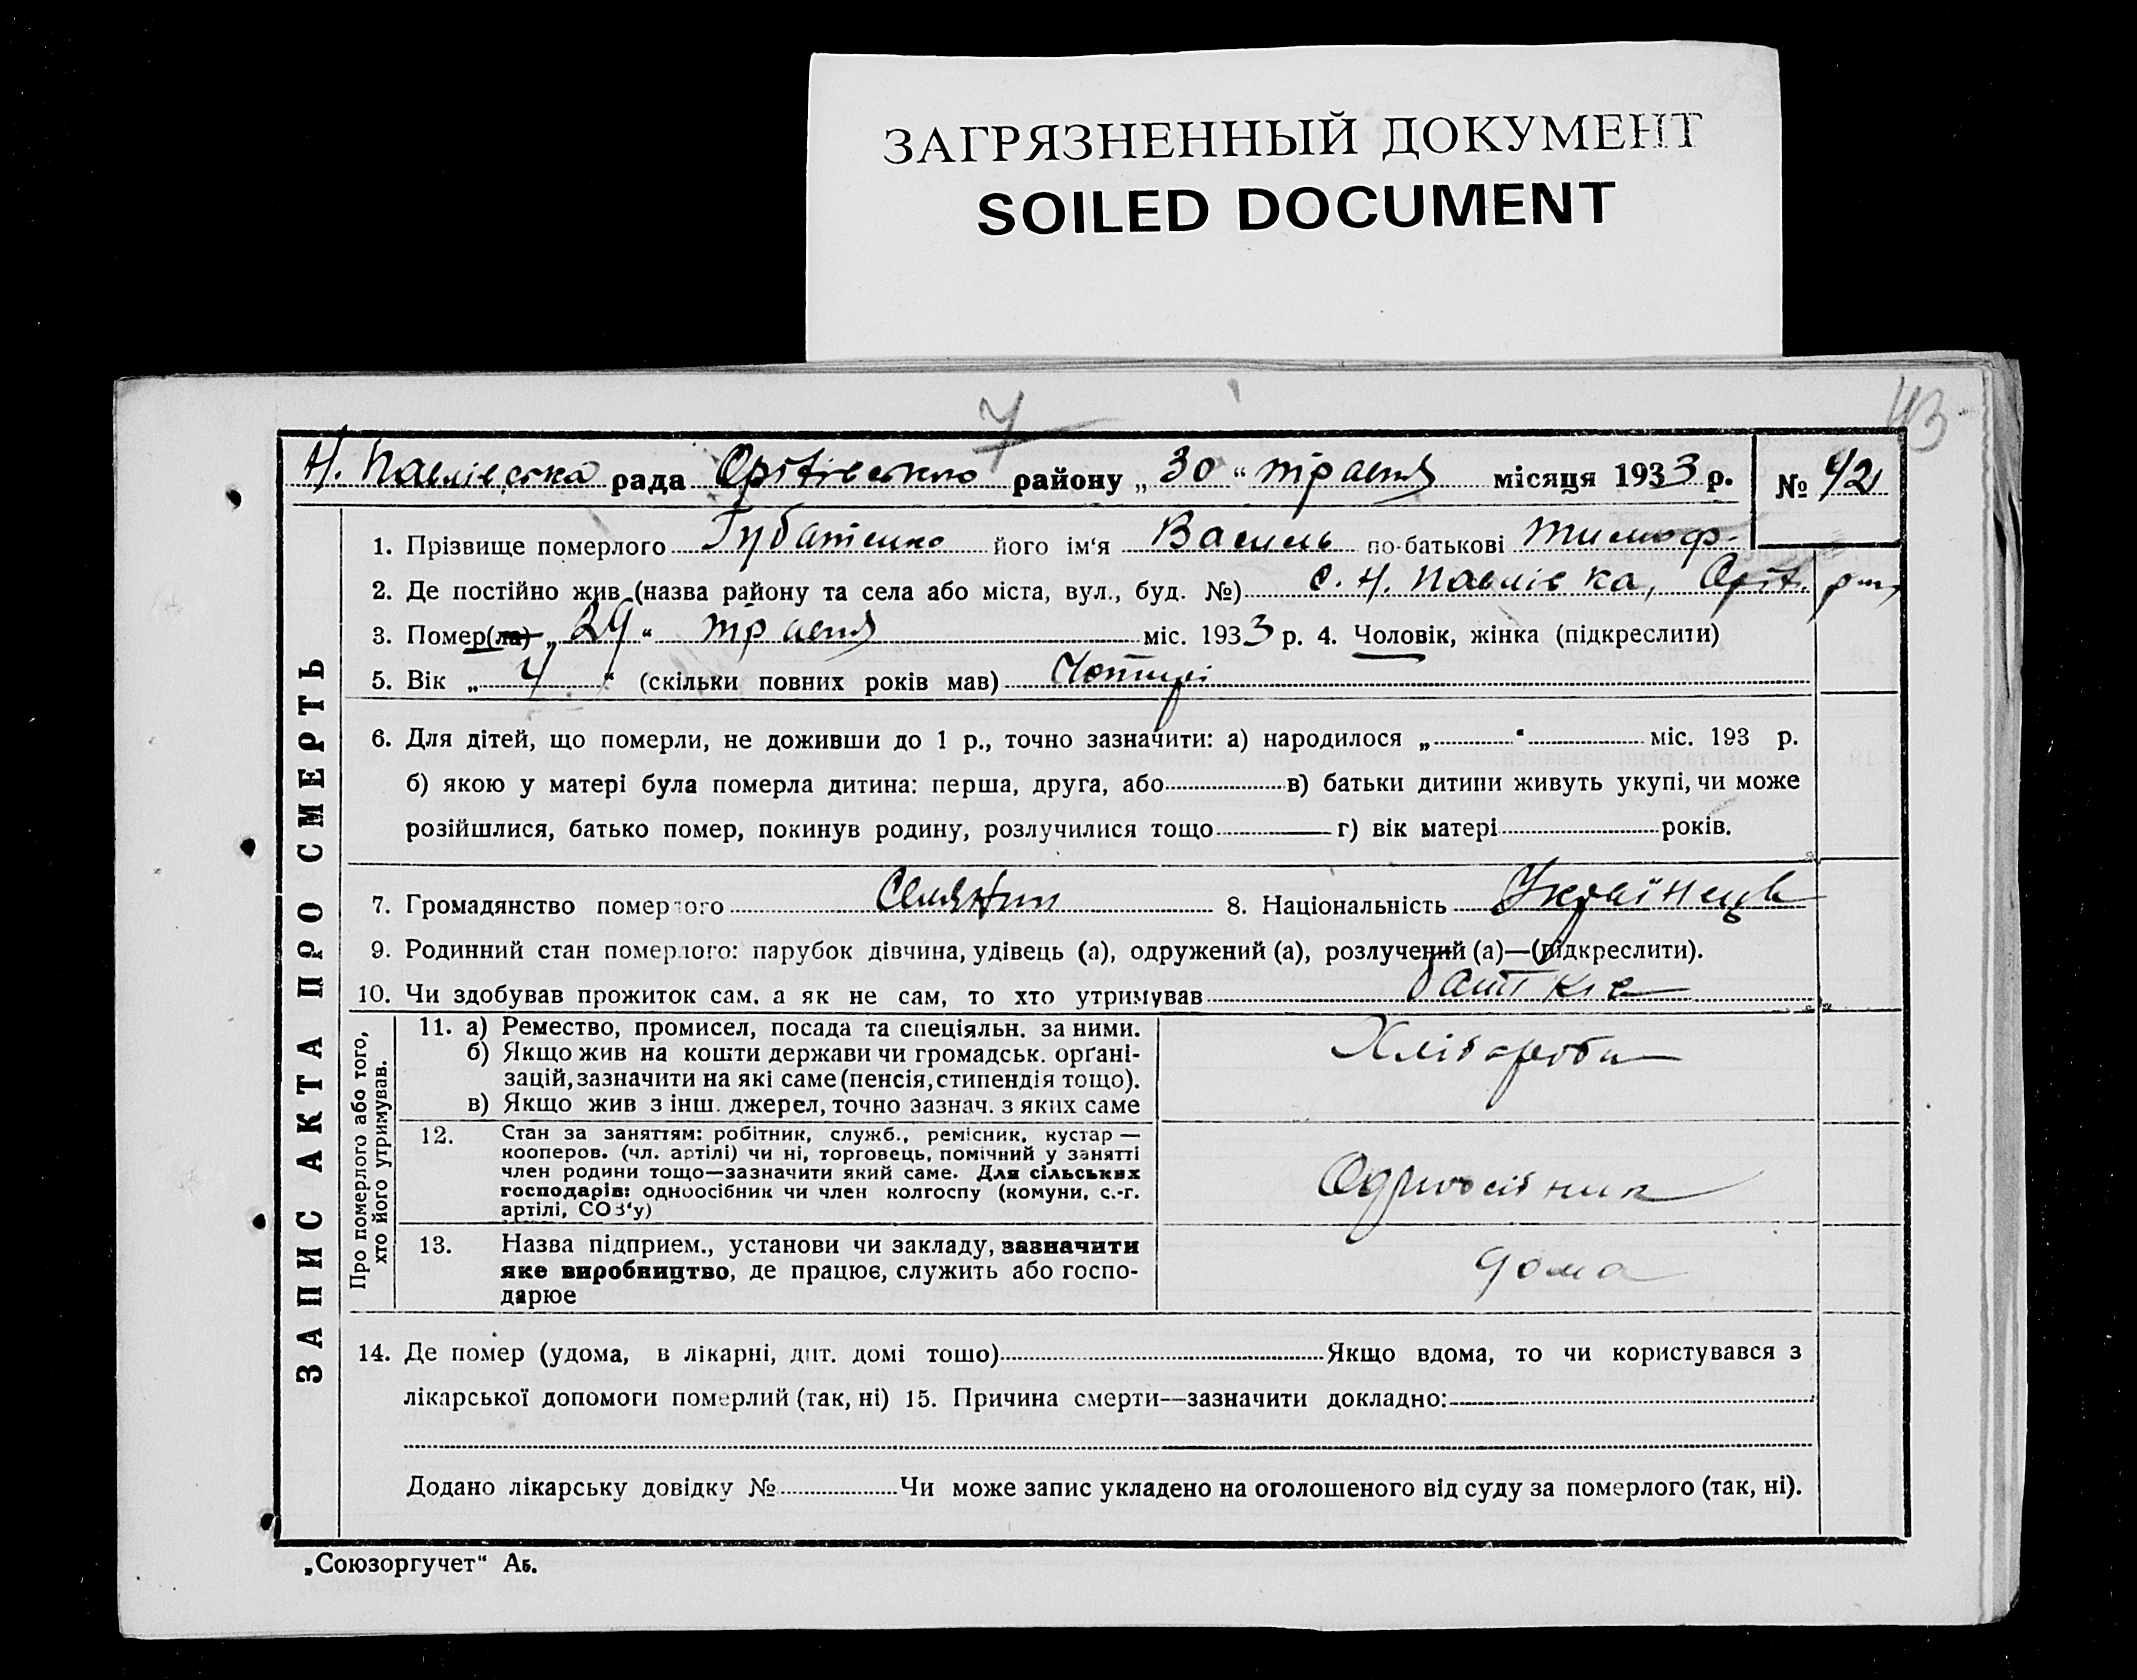 ЗАГРЯЗНЕННЫЙ ДОКУМЕНТ
SOILED DOCUMENT
7
43
Н. Павлівська рада Оріхівського району „30“ травня місяця 1933 р. № 42
1. Прізвище померлого Губатенко його ім'я Василь по-батькові Тимоф.
2. Де постійно жив (назва району та села або міста, вул., буд. №) с. Н. Павлівка, Оріх. р-ну
3. Помер(ла) „29“ травня міс. 1933 р. 4. Чоловік, жінка (підкреслити)
5. Вік „4“ (скільки повних років мав) Чотирі
6. Для дітей, що померли, не доживши до 1 р., точно зазначити: а) народилося „ “ міс. 193 р.
б) якою у матері була померла дитина: перша, друга, або в) батьки дитини живуть укупі, чи може
розійшлися, батько помер, покинув родину, розлучилися тощо г) вік матері років.
7. Громадянство померлого Селянин 8. Національність Українець
9. Родинний стан померлого: парубок дівчина, удівець (а), одружений (а), розлучений (а)—(підкреслити).
10. Чи здобував прожиток сам, а як не сам, то хто утримував батьки
11. а) Ремество, промисел, посада та спеціяльн. за ними.
б) Якщо жив на кошти держави чи громадськ. орґані-
зацій, зазначити на які саме (пенсія, стипендія тощо).
в) Якщо жив з інш. джерел, точно зазнач. з яких саме
Хліборобы
12. Стан за заняттям: робітник, служб., ремісник, кустар —
кооперов. (чл. артілі) чи ні, торговець, помічний у занятті
член родини тощо—зазначити який саме. Для сільських
господарів: одноосібник чи член колгоспу (комуни, с.-г.
артілі, СОЗ'у)
Одноосібник
13. Назва підприєм., установи чи закладу, зазначити
яке виробництво, де працює, служить або госпо-
дарює
дома
14. Де помер (удома, в лікарні, дит. домі тощо) Якщо вдома, то чи користувався з
лікарської допомоги померлий (так, ні) 15. Причина смерти—зазначити докладно:
Додано лікарську довідку № Чи може запис укладено на оголошеного від суду за померлого (так, ні).
ЗАПИС АКТА ПРО СМЕРТЬ
Про померлого або того,
хто його утримував.
„Союзоргучет“ Аб.